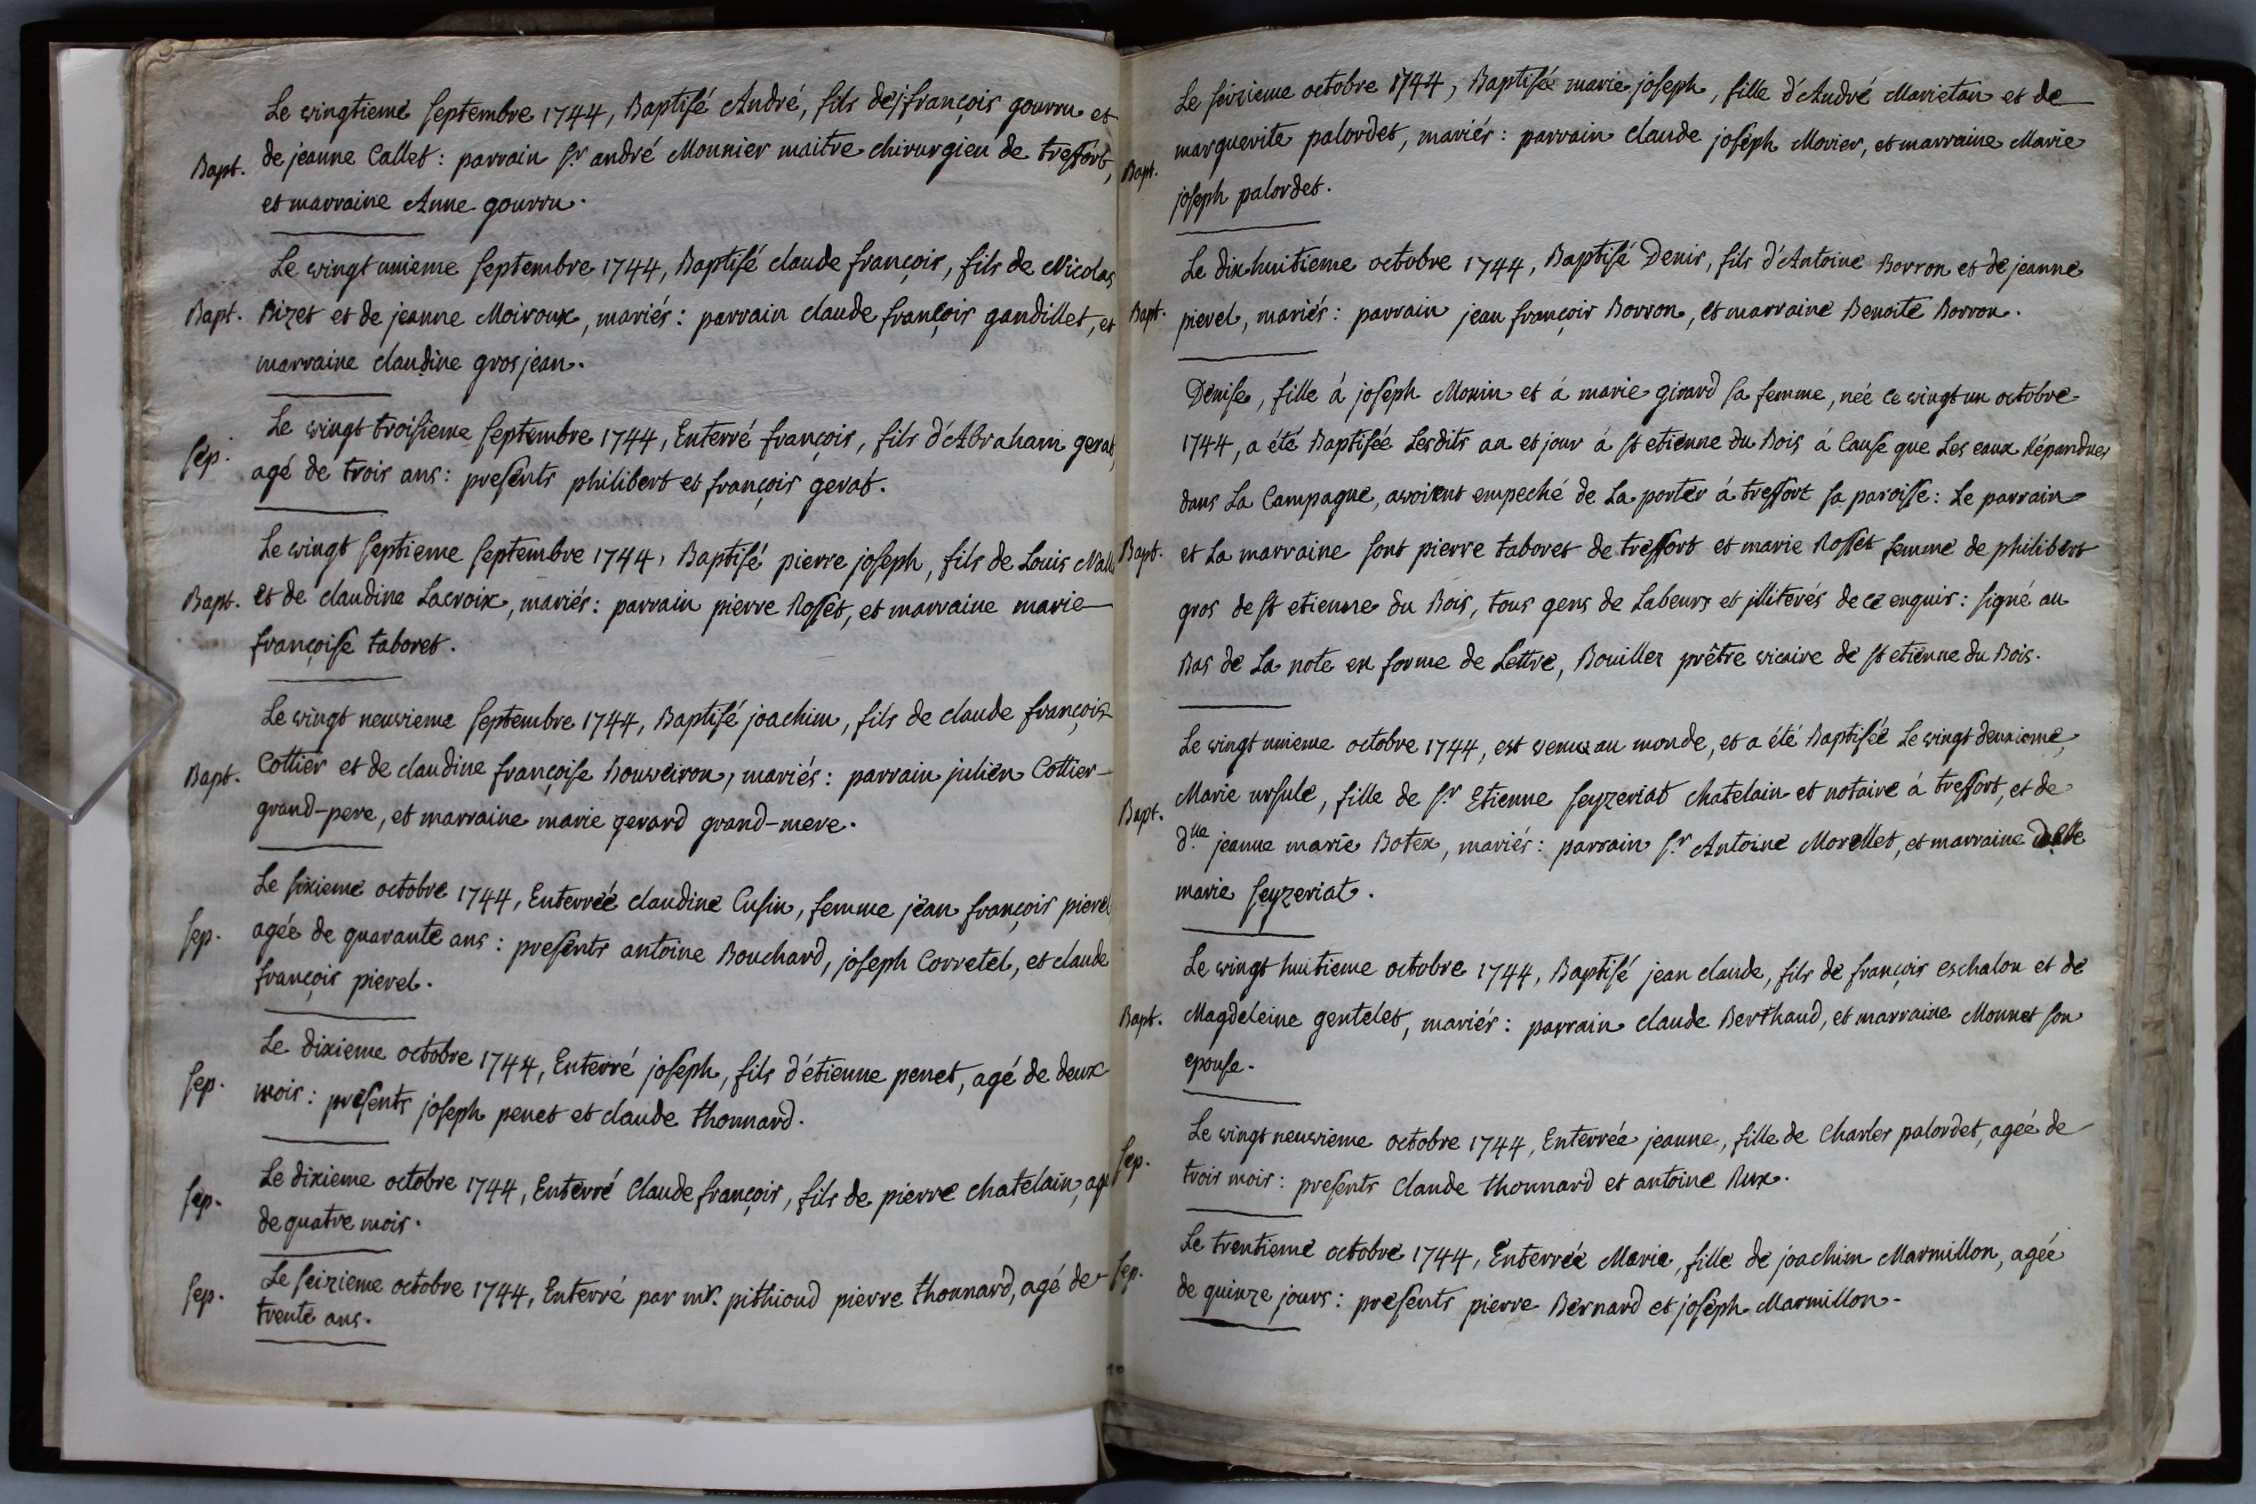 Le vingtieme septembre 1744, Baptisé André, fils de françois gourru et
Bapt. de jeanne Callet: parrain Sr andré Monnier maitre chirurgien de treffort,
et marraine Anne gourru.
Le vingt unieme septembre 1744, Baptisé claude françois, fils de Nicolas
Bapt. Bizet et de jeanne Moiroux, mariés: parrain claude françois gandillet, et
marraine claudine grosjean.
Le vingt troisieme septembre 1744, Enterré françois, fils d'Abraham gerat,
sep. agé de trois ans: presents philibert et françois gerat.
Le vingt septieme septembre 1744, Baptisé pierre joseph, fils de Louis
Bapt. et de claudine Lacroix, mariés: parrain pierre Rosset, et marraine marie
françoise taboret.
Le vingt neuvieme septembre 1744, Baptisé joachim, fils de claude françois
Bapt. Cottier et de claudine françoise houveiron, mariés: parrain julien Cottier
grand-pere, et marraine marie gerard grand-mere.
Le sixieme octobre 1744, Enterrée claudine Cusin, femme jean françois pierel
sep. agée de quarante ans: presents antoine Bouchard, joseph Corretel, et claude
françois pierel.
Le dixieme octobre 1744, Enterré joseph, fils d'étienne penet, agé de deux
sep. mois: presents joseph penet et claude thonnard.
Le dixieme octobre 1744, Enterré Claude françois, fils de pierre chatelain, agé
sep. de quatre mois.
Le seizieme octobre 1744, Enterré par mr. pithioud pierre thonnard, agé de
sep. trente ans.
Le seizieme octobre 1744, Baptisée marie joseph, fille d'André Marietan et de
Bapt. marguerite palordet, mariés: parrain claude joseph Morier, et marraine Marie
joseph palordet.
Le dixhuitieme octobre 1744, Baptisé Denis, fils d'Antoine Borron et de jeanne
Bapt. pierel, mariés: parrain jean françois Borron, et marraine Benoite Borron.
Denise, fille à joseph Monin et à marie girard sa femme, née ce vingt un octobre
1744, a été Baptisée Lesdits an et jour à st etienne du Bois à Cause que Les eaux Répandues
dans La Campagne, avoient empeché de La porter à treffort sa paroisse: Le parrain
Bapt. et La marraine sont pierre taboret de treffort et marie Rosset femme de philibert
gros de st etienne du Bois, tous gens de Labeurs et jlliterés de ce enquis: signé au
Bas de La note en forme de Lettre, Bouiller prêtre vicaire de st etienne du Bois.
Le vingt unieme octobre 1744, est venue au monde, et a été Baptisée Le vingt deuxieme,
Bapt. Marie ursule, fille de Sr Etienne Seyzeriat chatelain et notaire à treffort, et de
dlle jeanne marie Botex, mariés: parrain Sr Antoine Morellet, et marraine delle
marie Seyzeriat.
Le vingt huitieme octobre 1744, Baptisé jean claude, fils de françois eschalon et de
Bapt. Magdeleine gentelet, mariés: parrain claude Berthaud, et marraine Monnet son
epouse.
Le vingt neuvieme octobre 1744, Enterrée jeanne, fille de Charles palordet, agée de
sep. trois mois: presents Claude thonnard et antoine Rux.
Le trentieme octobre 1744, Enterrée Marie, fille de joachim Marmillon, agée
sep. de quinze jours: presents pierre Bernard et joseph Marmillon.